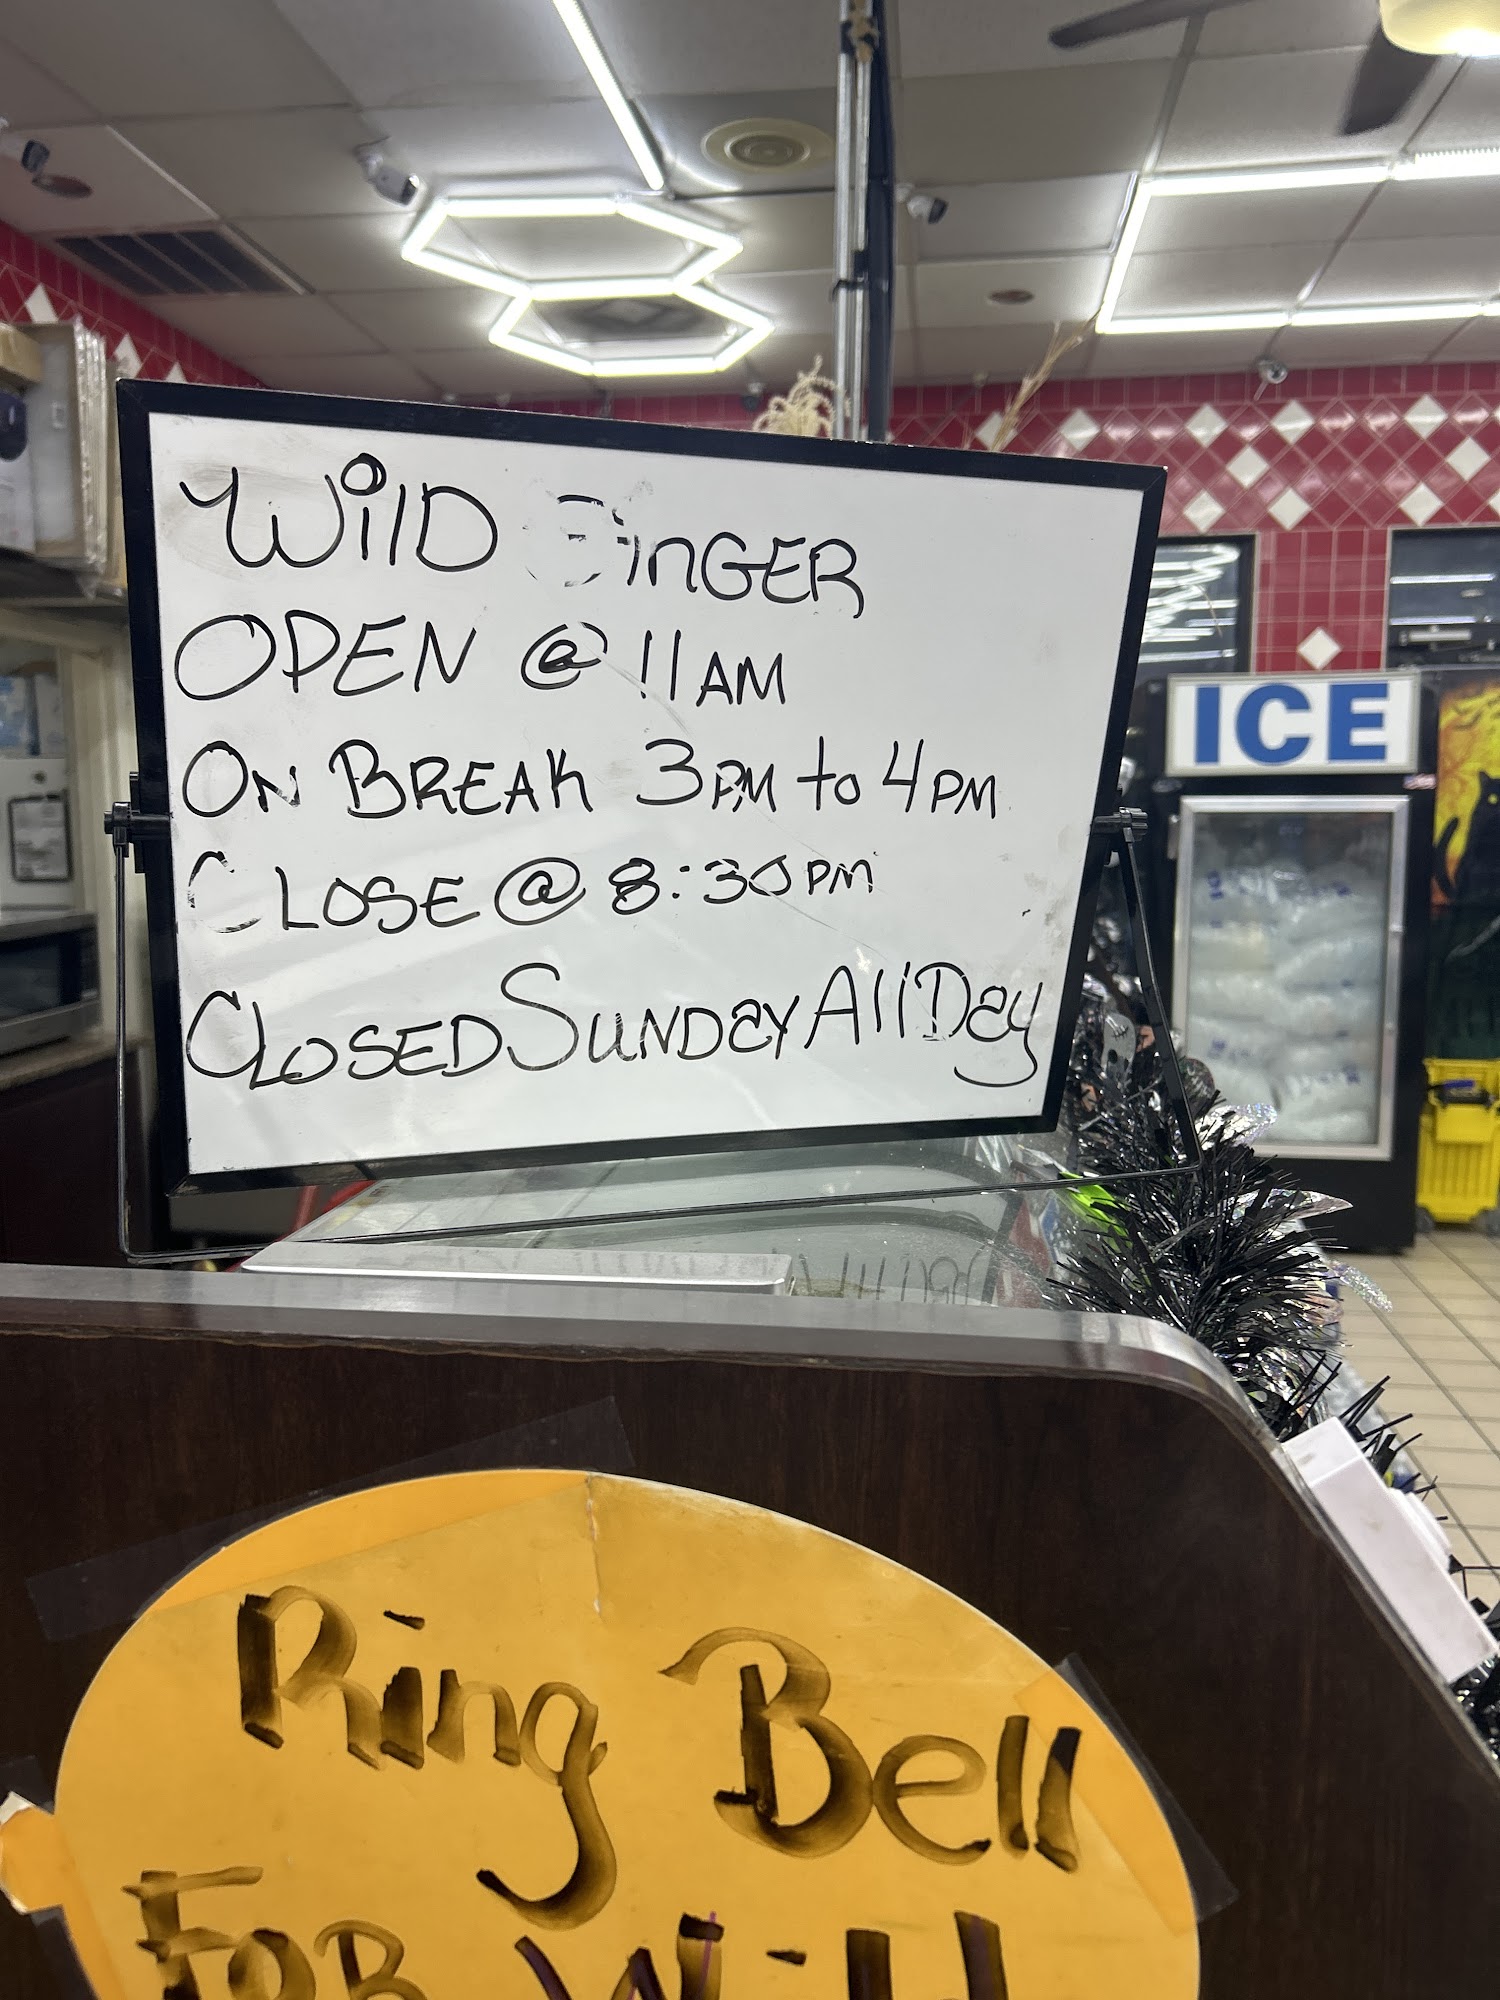 WilD GinGER
OPEN @ 11AM
ON BREAK 3PM to 4PM
CLOSE @ 8:30PM
CLOSED SUNDay All Day
ICE
Ring Bell
FOR Wild